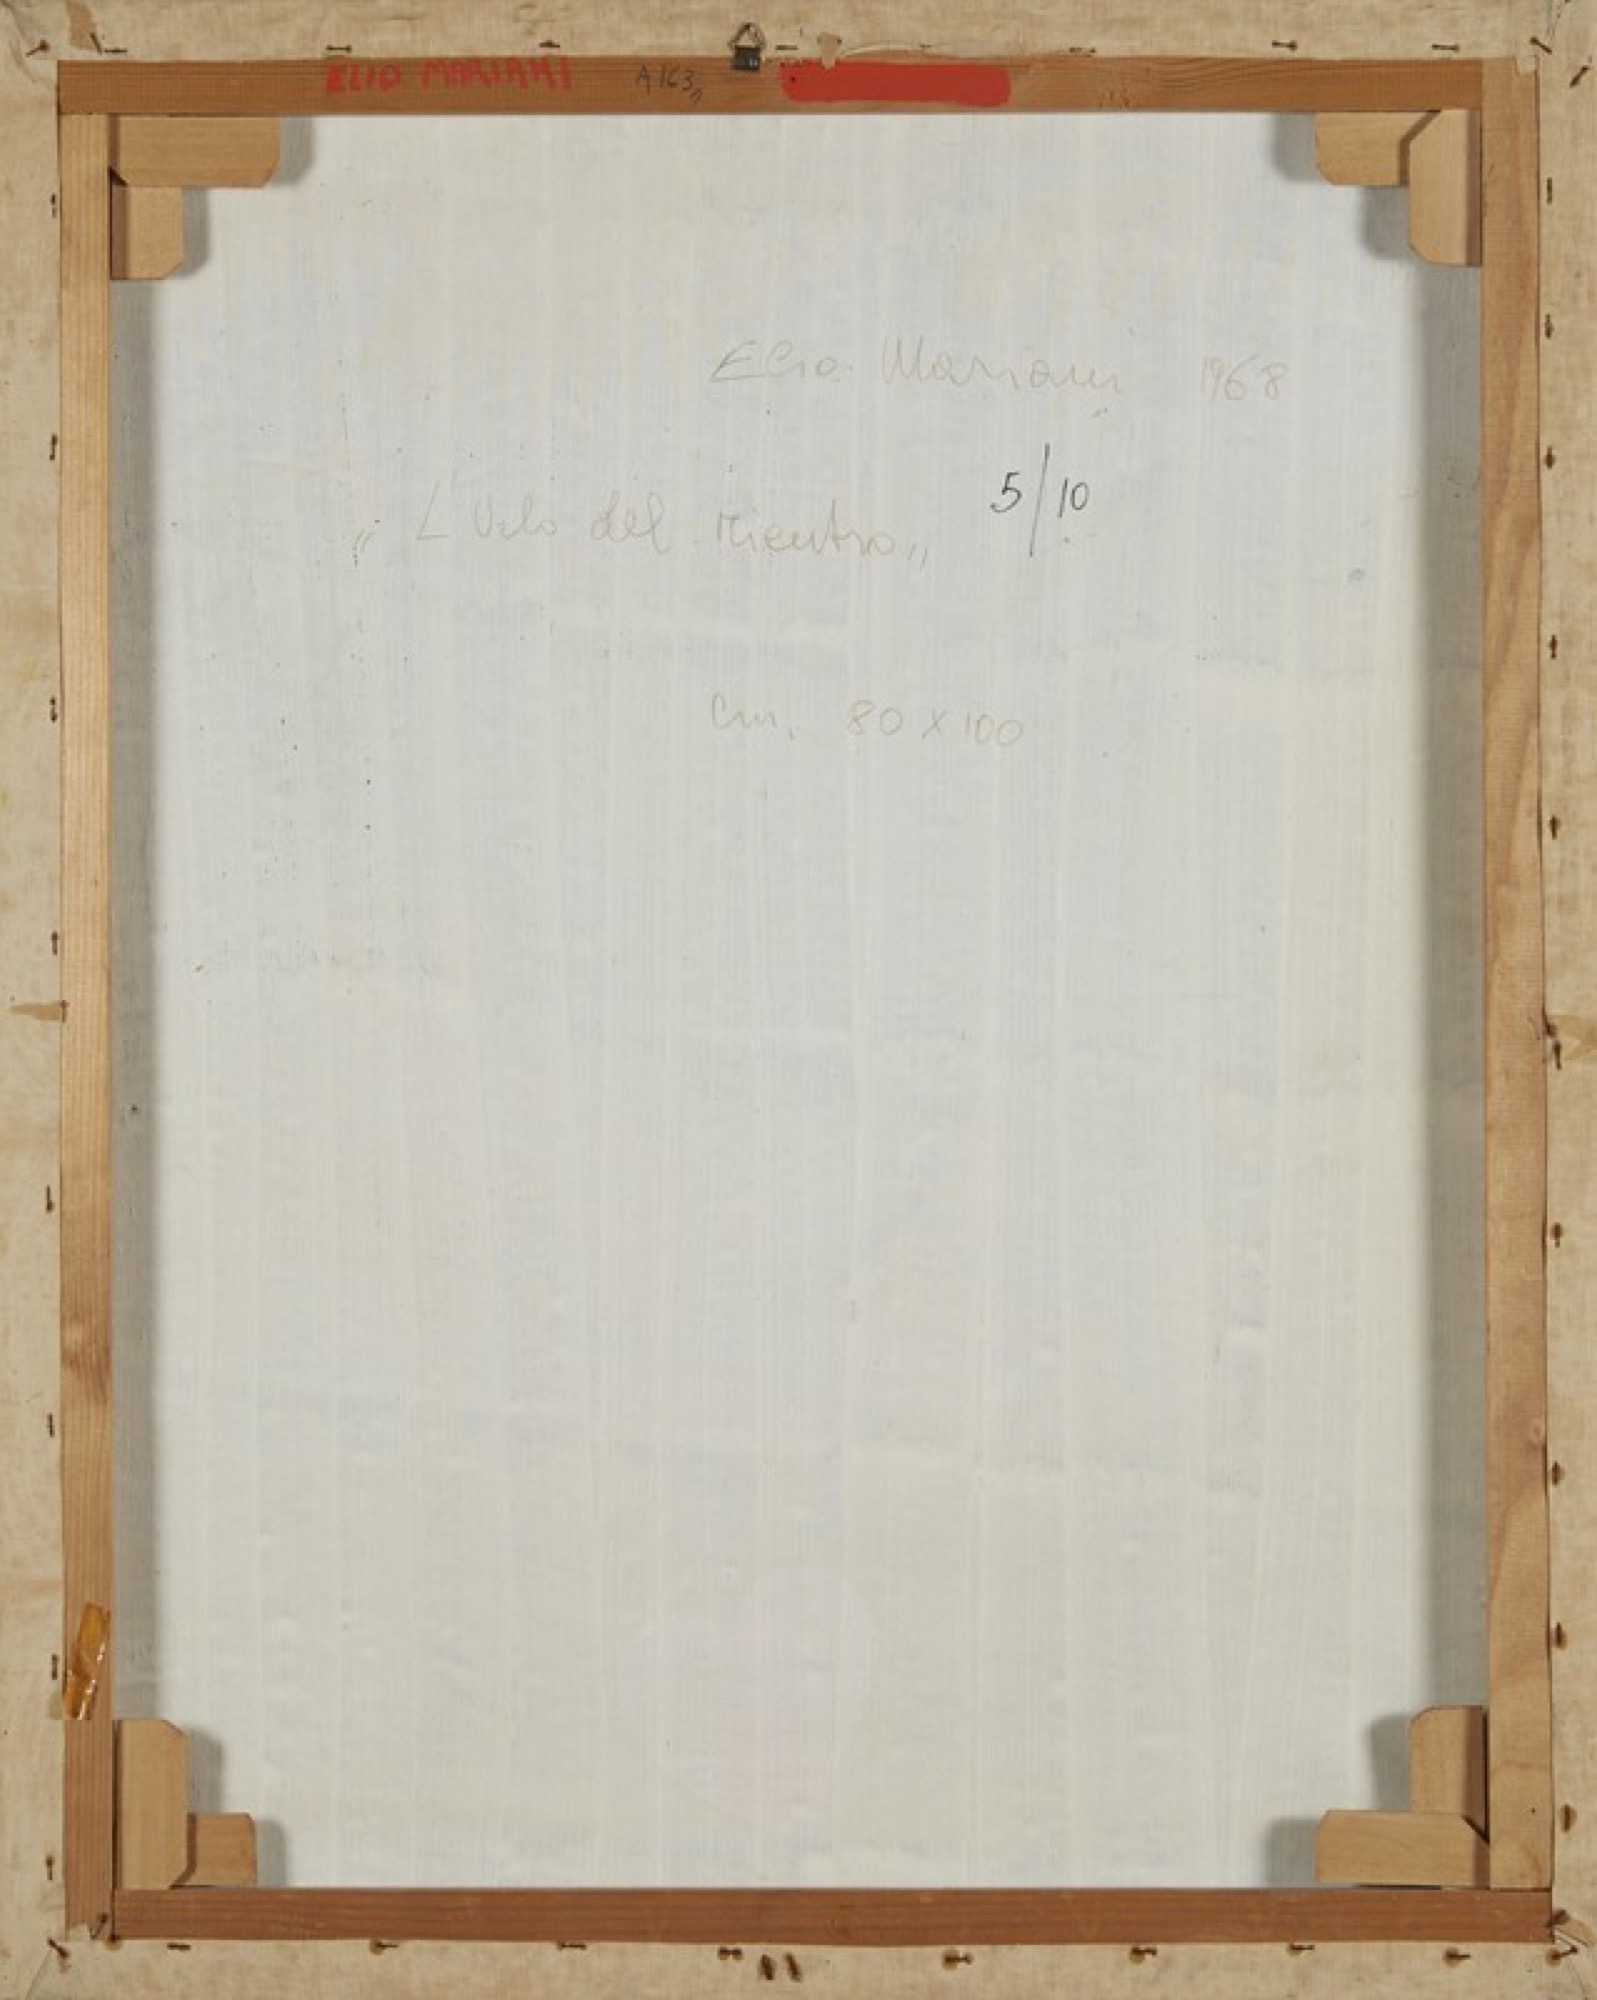 ELIO MARIANI A163
Elio Mariani 1968
5/10
" L' Urlo del rientro "
cm. 80 x 100